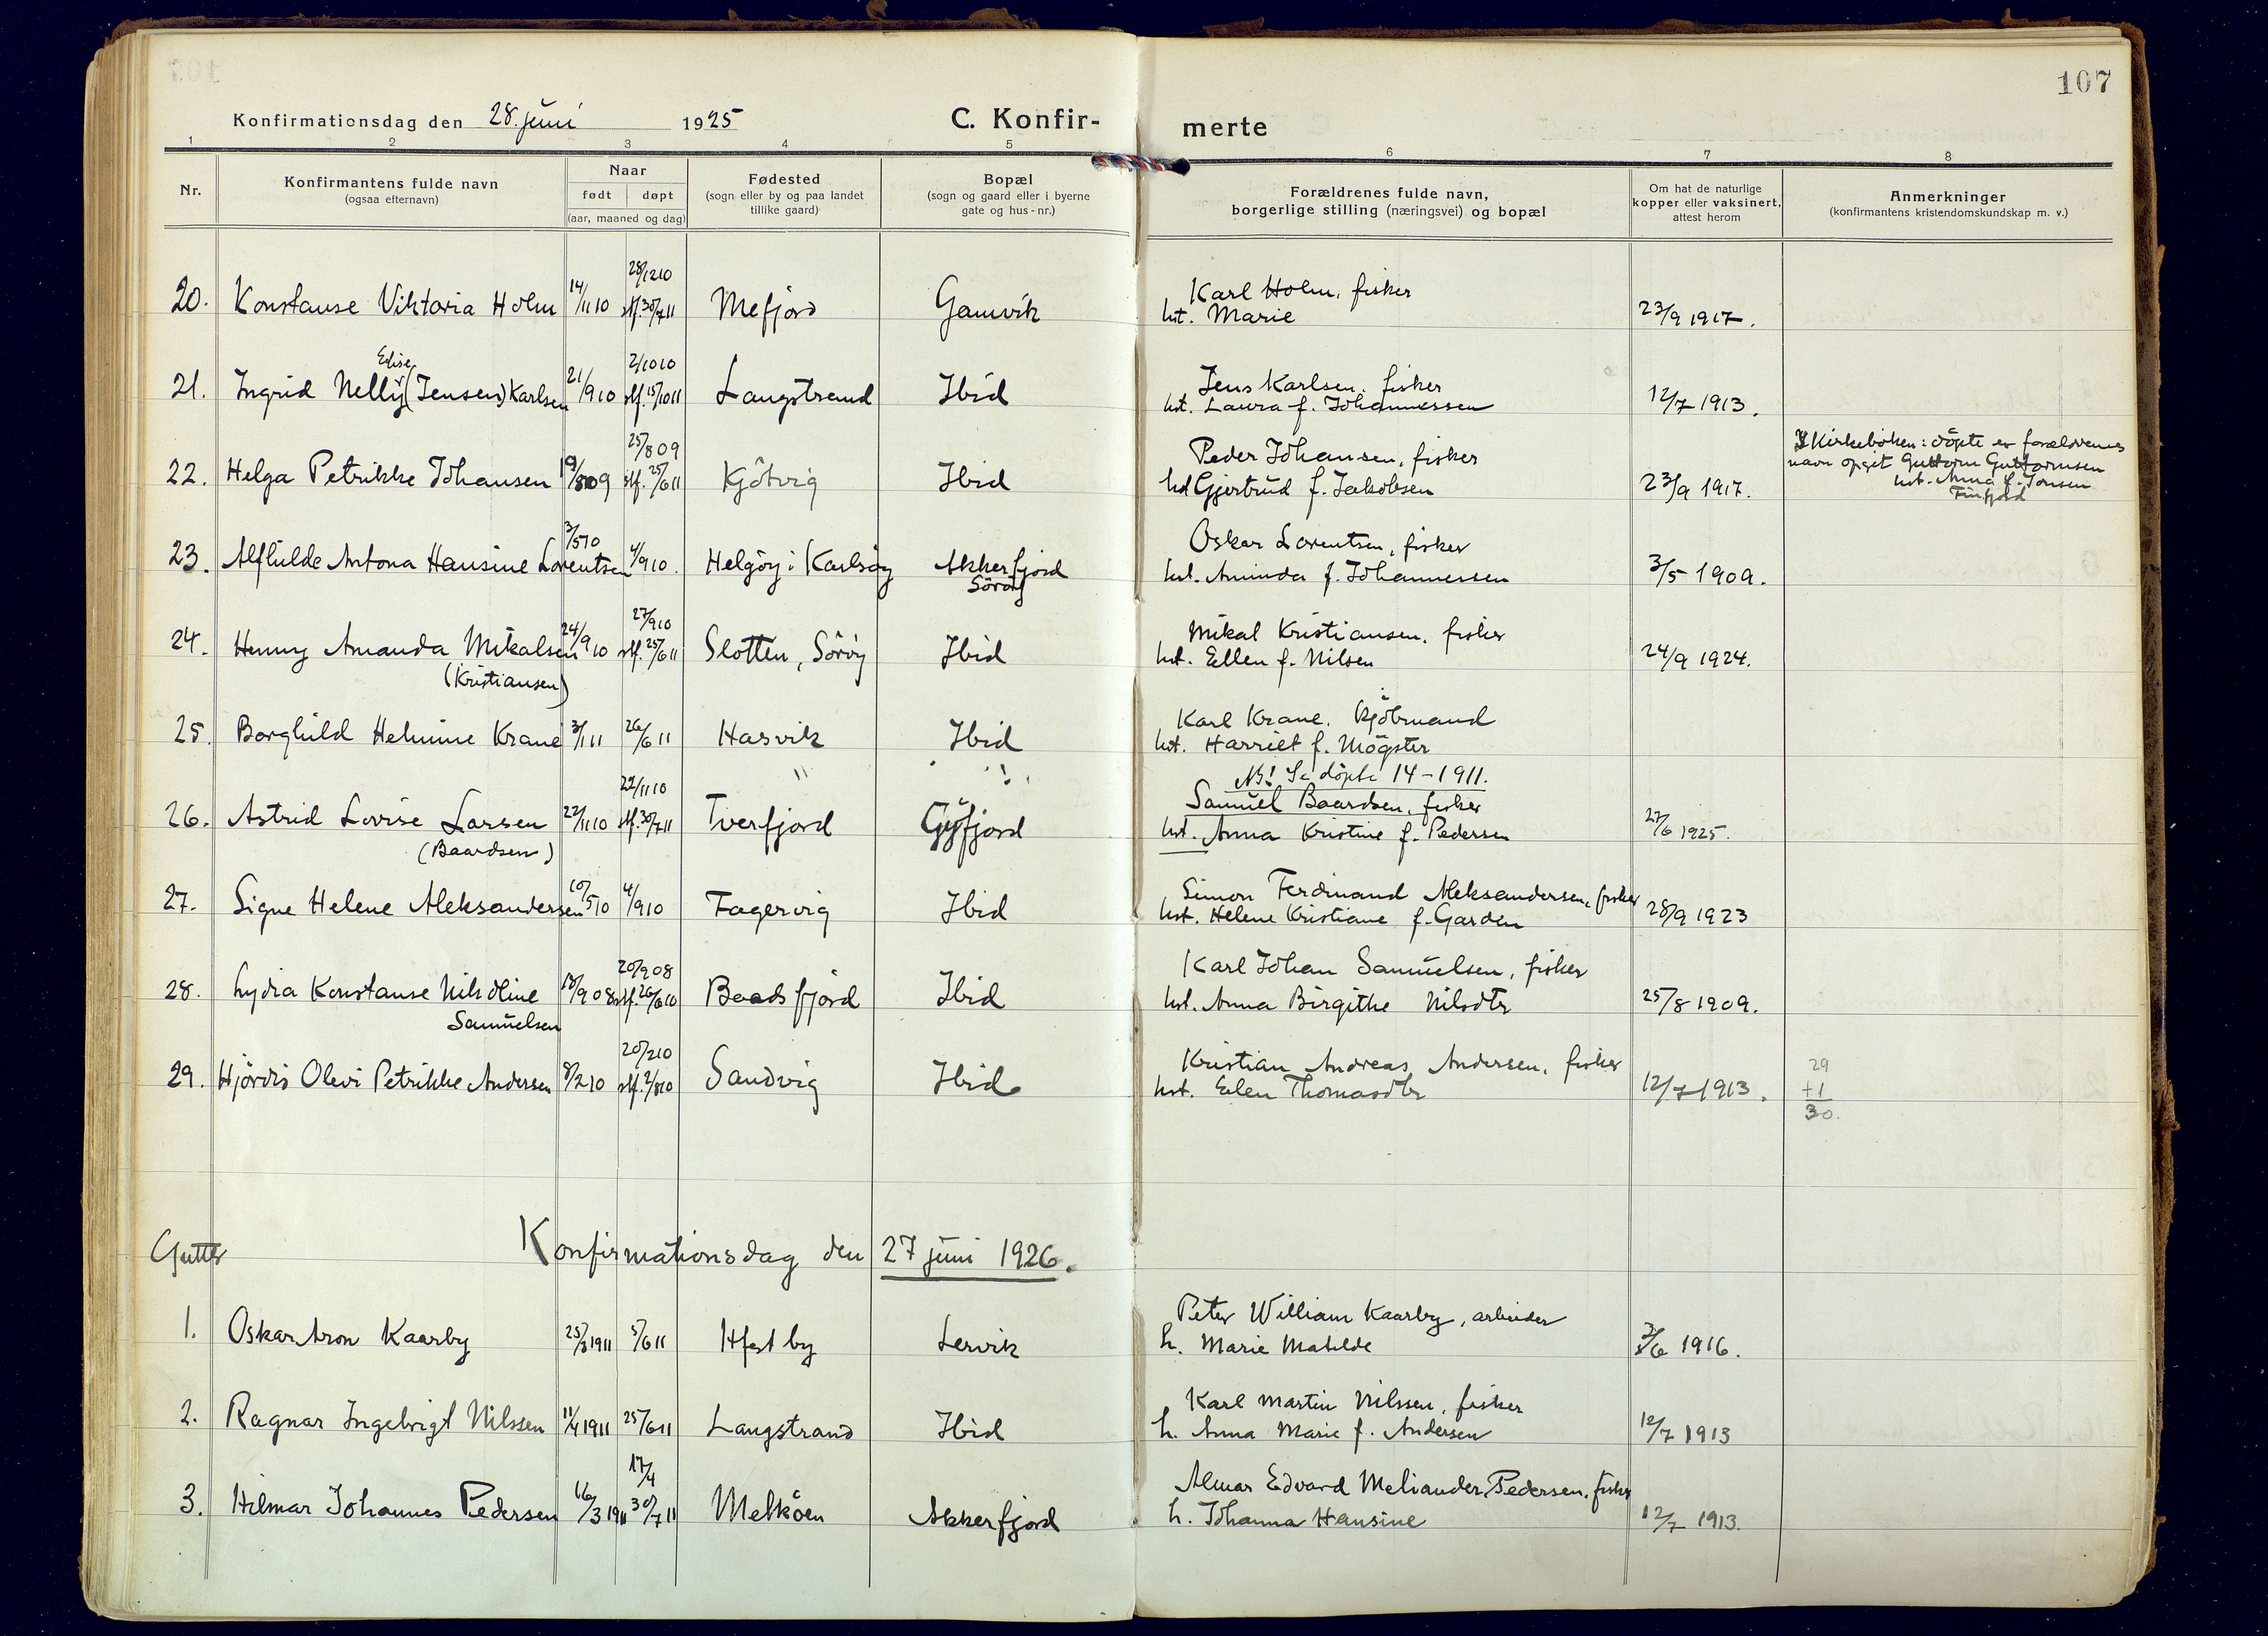 107
Konfirmationsdag den 28. juni 1925
C. Konfir-
merte
1 2 3 4 5 6 7 8
Nr.
Konfirmantens fulde navn
(ogsaa efternavn)
Naar
født døpt
(aar, maaned og dag)
Fødested
(sogn eller by og paa landet
tillike gaard)
Bopæl
(sogn og gaard eller i byerne
gate og hus-nr.)
Forældrenes fulde navn,
borgerlige stilling (næringsvei) og bopæl
Om hat de naturlige
kopper eller vaksinert,
attest herom
Anmerkninger
(konfirmantens kristendomskundskap m. v.)
28/12 10
Karl Holm, fisker
20. Konstanse Viktoria Holm 14/11 10 stf. 30/7 11 Mefjord Gamvik hst. Marie 23/9 1917.
Edise 2/10 10
Jens Karlsen, fisker
21. Ingrid Nelly (Jensen) Karlsen 21/9 10 stf. 15/10 11 Langstrand Ibid hst. Laura f. Johannessen 12/7 1913.
25/8 09
Peder Johansen, fisker
22. Helga Petrikke Johansen 19/8 09 stf. 25/6 11 Kjötvig Ibid hst Gjertrud f. Jakobsen 23/9 1917.
I Kirkeboken: döpte er forældrenes
navn opgit Guttorm Guttormsen
hst. Anna f. Jonsen
Finfjord
3/5 10
Oskar Lorentsen, fisker
23. Alfhilde Antona Hansine Lorentsen 4/9 10. Helgöy i Karlsöy Akkerfjord hst. Aminda f. Johannessen 3/5 1909.
Söröy
27/9 10
Mikal Kristiansen, fisker
24. Henny Amanda Mikalsen 24/9 10 stf. 25/6 11 Slotten, Söröy Ibid hst. Ellen f. Nilsen 24/9 1924.
(Kristiansen)
Karl Krane. Kjöbmand
25. Borghild Helmine Krane 3/1 11 26/6 11 Hasvik Ibid hst. Harriet f. Mögster
NB! Se döpte 14-1911.
22/11 10
Samuel Baardsen, fisker
26. Astrid Lovise Larsen 22/11 10 stf. 30/7 11 Tverfjord Gåfjord hst. Anna Kristine f. Pedersen 27/6 1925.
(Baardsen)
Simon Ferdinand Aleksandersen, fisker
27. Signe Helene Aleksandersen 10/5 10 4/9 10 Fagervig Ibid hst. Helene Kristiane f. Garden 28/9 1923
20/9 08
Karl Johan Samuelsen, fisker
28. Lydia Konstanse Nikoline 18/9 08 stf. 26/6 10 Baadsfjord Ibid hst. Anna Birgithe Nilsdtr 25/8 1909.
Samuelsen
20/2 10
Kristian Andreas Andersen, fisker
29. Hjördis Olevi Petrikke Andersen 8/2 10 stf. 2/8 10 Sandvig Ibid hst. Elen Thomasdtr 12/7 1913.
29
+1
30.
Gutter Konfirmationsdag den 27 juni 1926.
Peter William Kaarby, arbeider
1. Oskar Aron Kaarby 25/3 1911 5/6 11 Hfest by Lervik h. Marie Matilde 3/6 1916.
Karl Martin Nilssen, fisker
2. Ragnar Ingebrigt Nilssen 11/4 1911 25/6 11 Langstrand Ibid h. Anna Marie f. Andersen 12/7 1913
17/4
Almar Edvard Meliander Pedersen, fisker
3. Hilmar Johannes Pedersen 16/3 1911 30/7 11 Melköen Akkerfjord h. Johanna Hansine 12/7 1913.